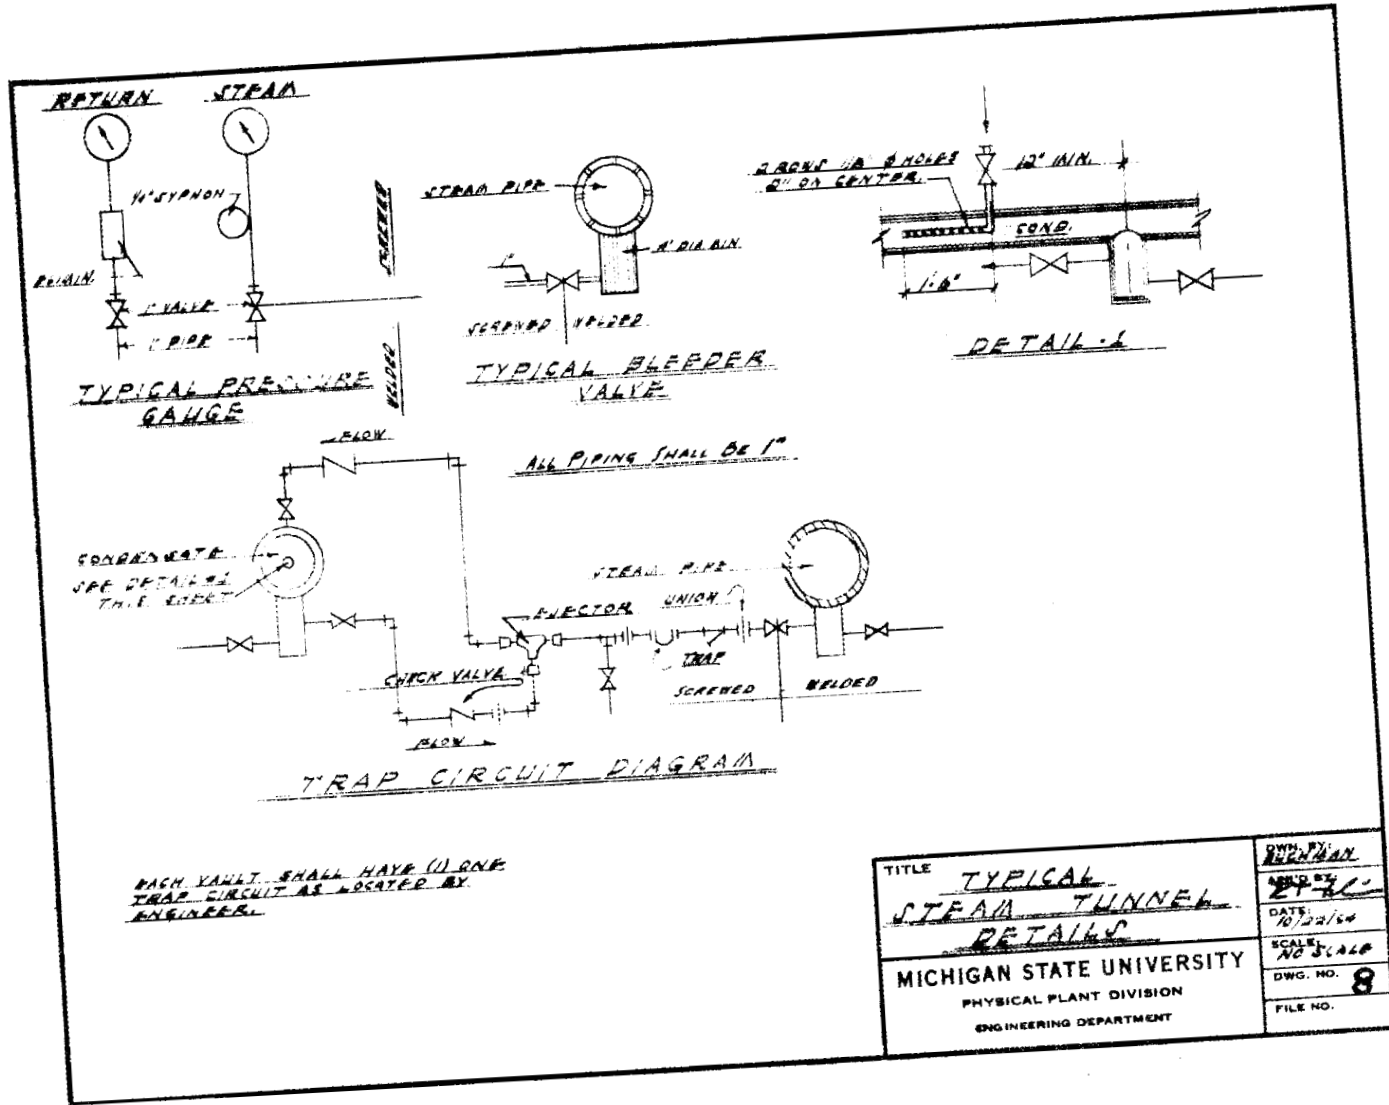 RETURN
STEAM
1/4" SYPHON
1" VALVE
1" PIPE
TYPICAL PRESSURE
GAUGE
SCREWED
WELDED
STEAM PIPE
1"
SCREWED WELDED
TYPICAL BLEEDER
VALVE
2 ROWS 1/8" ϕ HOLES
2" ON CENTER.
12" MIN.
COND.
1'-6"
DETAIL-1
ALL PIPING SHALL BE 1"
FLOW
CONDENSATE
SEE DETAIL #1
THIS SHEET
STEAM PIPE
UNION
EJECTOR
TRAP
CHECK VALVE
SCREWED WELDED
FLOW
TRAP CIRCUIT DIAGRAM
EACH VAULT SHALL HAVE (1) ONE
TRAP CIRCUIT AS LOCATED BY
ENGINEER.
TITLE
TYPICAL
STEAM TUNNEL
DETAILS
MICHIGAN STATE UNIVERSITY
PHYSICAL PLANT DIVISION
ENGINEERING DEPARTMENT
DWN. BY:
DATE:
SCALE:
NO SCALE
DWG. NO. 8
FILE NO.